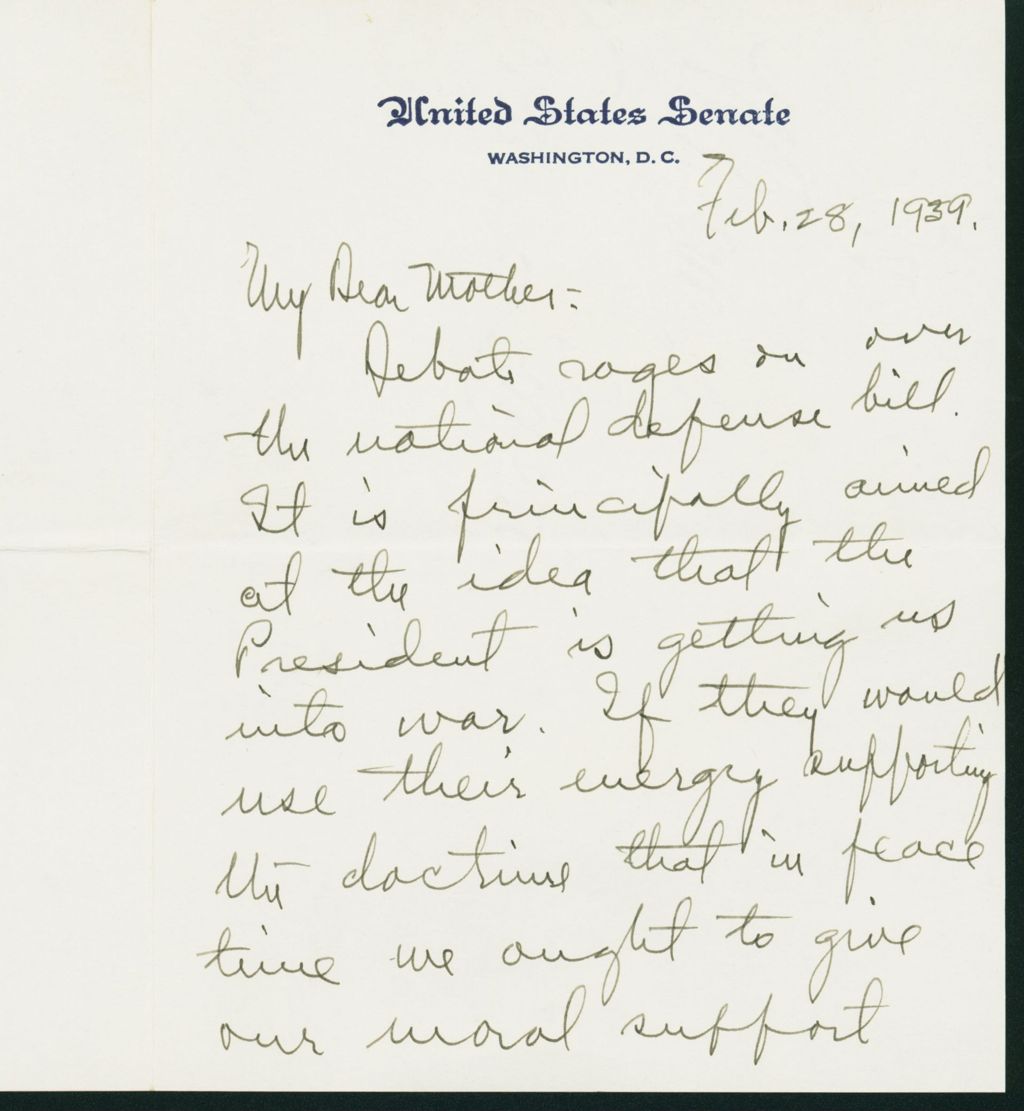 United States Senate
WASHINGTON, D. C.
Feb. 28, 1939.
My Dear Mother:-
Debate rages on over
the national defense bill.
It is principally aimed
at the idea that the
President is getting us
into war. If they would
use their energy supporting
the doctrine that in peace
time we ought to give
our moral support